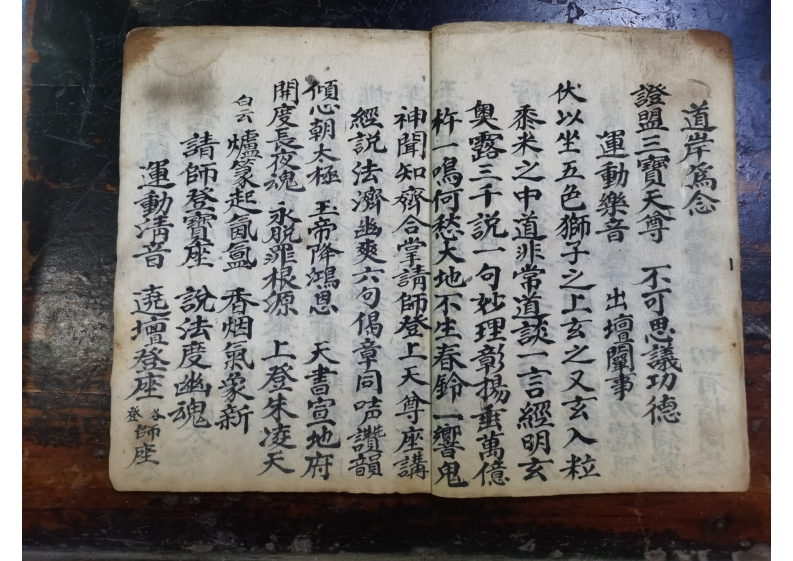 道岸為念
證盟三寶天尊 不可思議功德
運動樂音 出壇闡事
伏以坐五色獅子之上玄之又玄入粒
黍米之中道非常道談一言經明玄
奧露三千說一句妙理彰揚垂萬億
杵一鳴何愁大地不生春鈴一響鬼
神聞知齊合掌請師登上天尊座講
經說法濟幽爽六句偈章同吿讚韻
傾心朝太極 玉帝降鴻恩 天書宣地府
開度長夜魂 永脫罪根源 上登朱凌天
白云 爐篆起氤氳 香烟氣象新
請師登寶座 說法度幽魂
運動清音 遶壇登座 各師登座